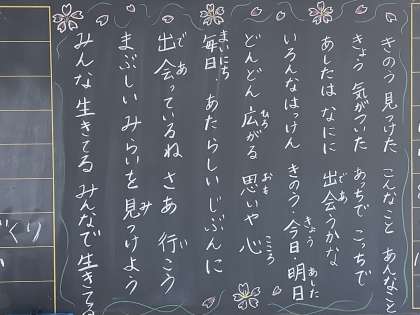 きのう 見つけた こんなこと あんなこと
きょう 気がついた あっちで こっちで
あしたは なにに 出会うかな
いろんなはっけん きのう・今日・明日
どんどん 広がる 思いや 心
毎日 あたらしい じぶんに
出会っているね さあ 行こう
まぶしい みらいを 見つけよう
みんな 生きてる みんなで 生きてる
づくり